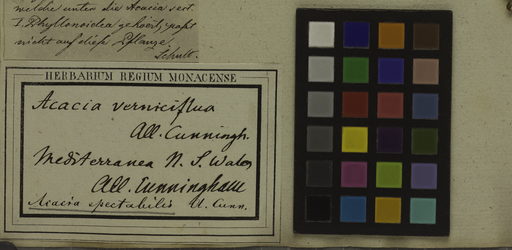 welche unter die Acacia sect.
I. Phyllodineae gehört, passt
nicht auf diese Pflanze.
Schult.
HERBARIUM REGIUM MONACENSE
Acacia verniciflua
All. Cunningh.
Mediterranea N. S. Wales
All. Cunninghame
Acacia spectabilis A. Cunn.